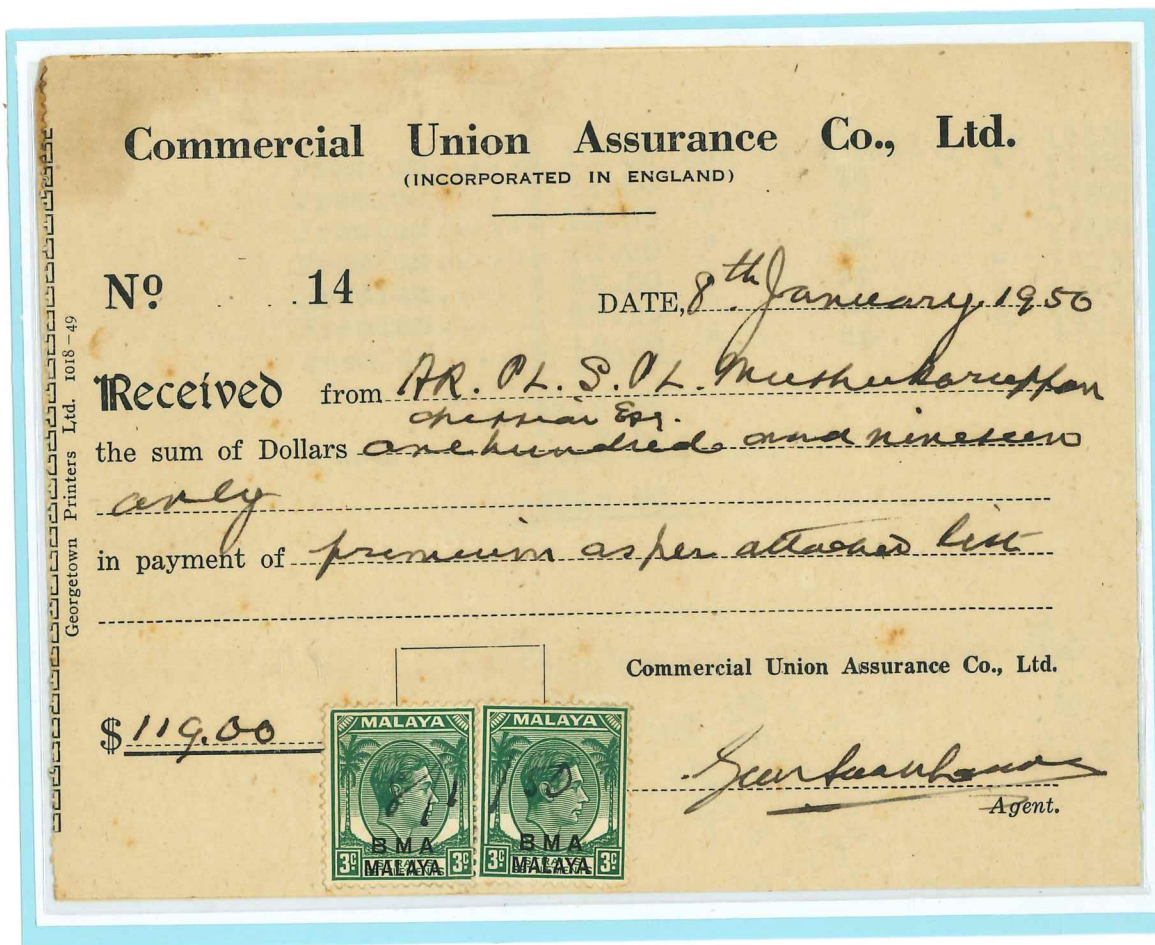 Commercial Union Assurance Co., Ltd.
(INCORPORATED IN ENGLAND)
Nº 14
DATE, 8th January 1950
Received from AR. PL. S. PL. Muthukaruppan
Chettiar Esq.
the sum of Dollars one hundred and nineteen
only
in payment of premium as per attached list
Commercial Union Assurance Co., Ltd.
$ 119.00
Agent.
Georgetown Printers Ltd. 1018-49
MALAYA
BMA
MALAYA
3c 3c
MALAYA
BMA
MALAYA
3c 3c
8/1/50